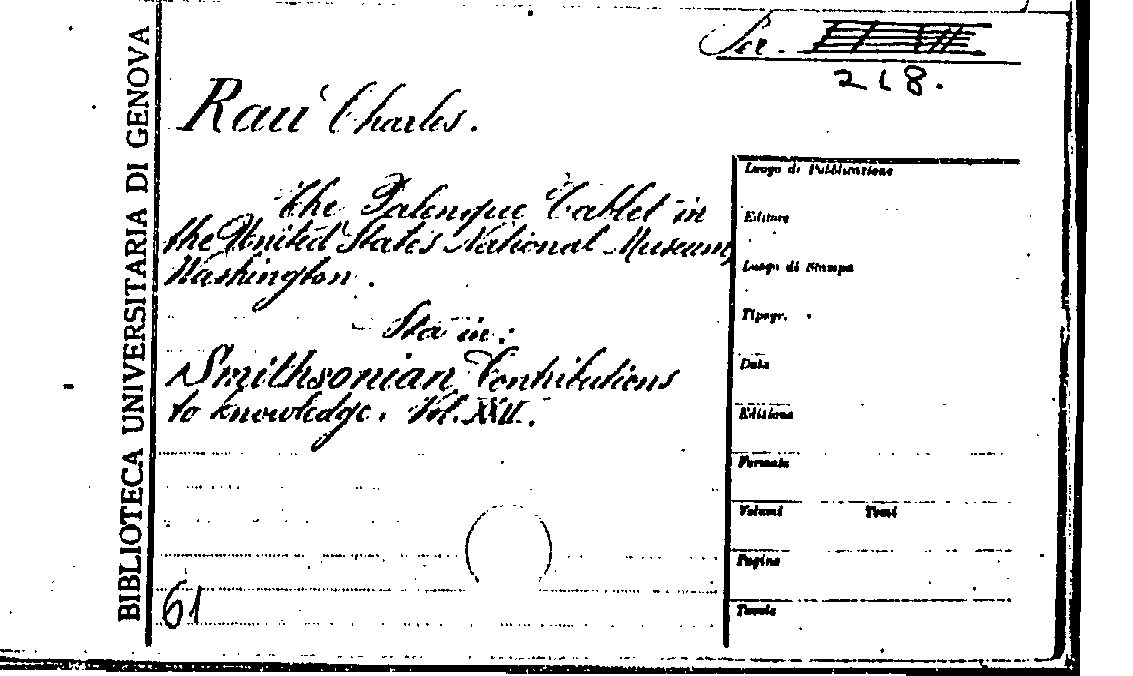 BIBLIOTECA UNIVERSITARIA DI GENOVA
Ser.
218.
Rau Charles.
The Palenque Tablet in
the United States National Museum,
Washington.
Sta in:
Smithsonian Contributions
to knowledge. Vol. XXII.
61
Luogo di Pubblicazione
Editore
Luogo di Stampa
Tipogr.
Data
Edizione
Formato
Volumi Tomi
Pagine
Tavole